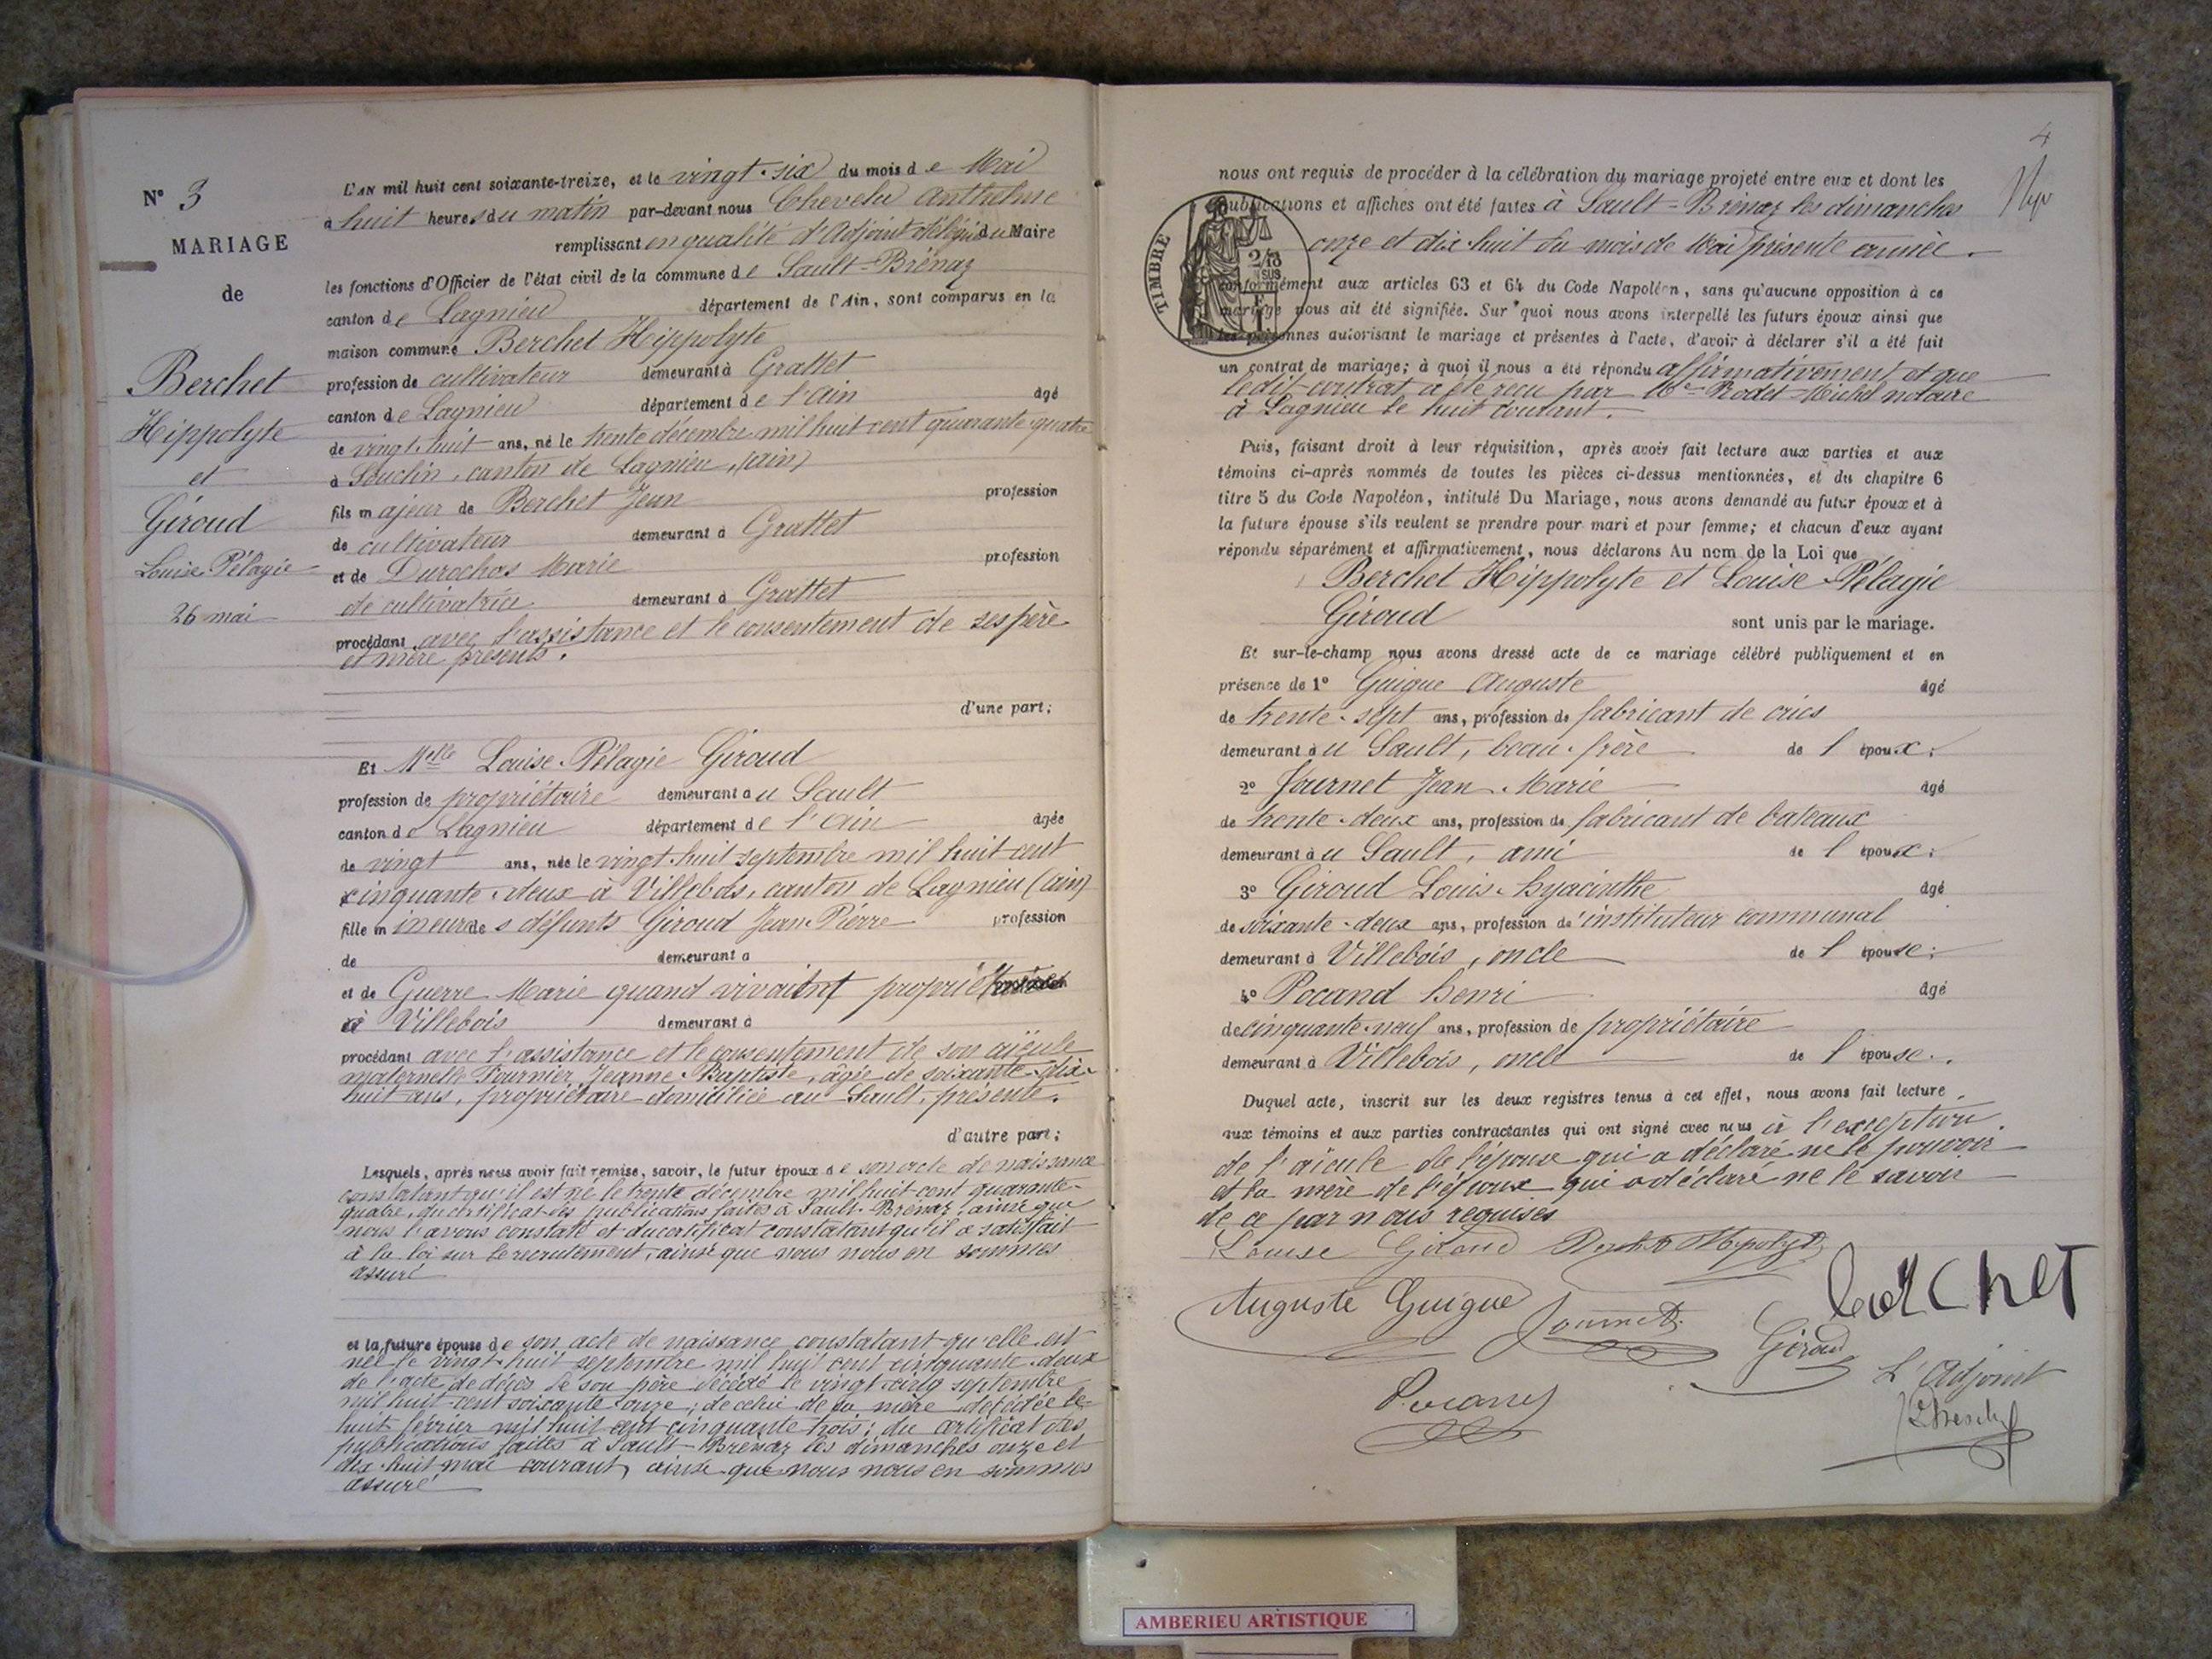 N° 3
MARIAGE
de
Berchet
Hippolyte
et
Giroud
Louise Pélagie
26 mai
L'AN mil huit cent soixante-treize, et le vingt-six du mois de Mai
à huit heures du matin par-devant nous Chevelu Anthelme
remplissant en qualité d'Adjoint délégué du Maire
les fonctions d'Officier de l'état civil de la commune de Sault-Brénaz
canton de Lagnieu département de l'Ain, sont comparus en la
maison commune Berchet Hippolyte
profession de cultivateur demeurant à Grattet
canton de Lagnieu département de l'Ain âgé
de vingt-huit ans, né le trente décembre mil huit cent quarante-quatre
à Souclin, canton de Lagnieu, (Ain)
fils majeur de Berchet Jean profession
de cultivateur demeurant à Grattet
et de Durochas Marie profession
de cultivatrice demeurant à Grattet
procédant avec l'assistance et le consentement de ses père
et mère présents.
d'une part;
Et Melle Louise-Pélagie Giroud
profession de propriétaire demeurant au Sault
canton de Lagnieu département de l'Ain âgée
de vingt ans, née le vingt-huit septembre mil huit cent
cinquante-deux à Villebois, canton de Lagnieu (Ain)
fille mineure des défunts Giroud Jean-Pierre profession
de demeurant à
et de Guerre Marie quand vivaient
à Villebois demeurant à
procédant avec l'assistance et le consentement de son aïeule
maternelle Fournier Jeanne-Baptiste, âgée de soixante-dix-
huit ans, propriétaire domiciliée au Sault, présente.
d'autre part;
Lesquels, après nous avoir fait remise, savoir, le futur époux de son acte de naissance
constatant qu'il est né le trente décembre mil huit cent quarante-
quatre, du certificat des publications faites à Sault-Brénaz, ainsi que
nous l'avons constaté et du certificat constatant qu'il a satisfait
à la loi sur le recrutement, ainsi que nous nous en sommes
assuré
et la future épouse de son acte de naissance constatant qu'elle est
née le vingt-huit septembre mil huit cent cinquante-deux
de l'acte de décès de son père décédé le vingt-cinq septembre
mil huit cent soixante onze; de celui de sa mère décédée le
huit février mil huit cent cinquante trois; du certificat des
publications faites à Sault-Brénaz les dimanches onze et
dix-huit mai courant, ainsi que nous nous en sommes
assuré
4
nous ont requis de procéder à la célébration du mariage projeté entre eux et dont les
publications et affiches ont été faites à Sault-Brénaz les dimanches
onze et dix-huit du mois de Mai présente année.
TIMBRE
conformément aux articles 63 et 64 du Code Napoléon, sans qu'aucune opposition à ce
mariage nous ait été signifiée. Sur quoi nous avons interpellé les futurs époux ainsi que
les personnes autorisant le mariage et présentes à l'acte, d'avoir à déclarer s'il a été fait
un contrat de mariage; à quoi il nous a été répondu affirmativement et que
ledit contrat a été reçu par Me Rodet-Michel notaire
à Lagnieu le huit courant.
Puis, faisant droit à leur réquisition, après avoir fait lecture aux parties et aux
témoins ci-après nommés de toutes les pièces ci-dessus mentionnées, et du chapitre 6
titre 5 du Code Napoléon, intitulé Du Mariage, nous avons demandé au futur époux et à
la future épouse s'ils veulent se prendre pour mari et pour femme; et chacun d'eux ayant
répondu séparément et affirmativement, nous déclarons Au nom de la Loi que
Berchet Hippolyte et Louise-Pélagie
Giroud sont unis par le mariage.
Et sur-le-champ nous avons dressé acte de ce mariage célébré publiquement et en
présence de 1° Guigue Auguste âgé
de trente-sept ans, profession de fabricant de crics
demeurant au Sault, beau-frère de l'époux;
2° Journet Jean-Marie âgé
de trente-deux ans, profession de fabricant de bateaux
demeurant au Sault, ami de l'époux;
3° Giroud Louis-hyacinthe âgé
de soixante-deux ans, profession d'instituteur communal
demeurant à Villebois, oncle de l'épouse;
4° Pocand henri âgé
de cinquante-neuf ans, profession de propriétaire
demeurant à Villebois, oncle de l'épouse.
Duquel acte, inscrit sur les deux registres tenus à cet effet, nous avons fait lecture
aux témoins et aux parties contractantes qui ont signé avec nous à l'exception
de l'aïeule de l'épouse qui a déclaré ne le pouvoir
et la mère de l'époux qui a déclaré ne le savoir
de ce par nous requises
Louise Giroud
berchet
Auguste Guigue Journet
Giroud
L'Adjoint
AMBERIEU ARTISTIQUE